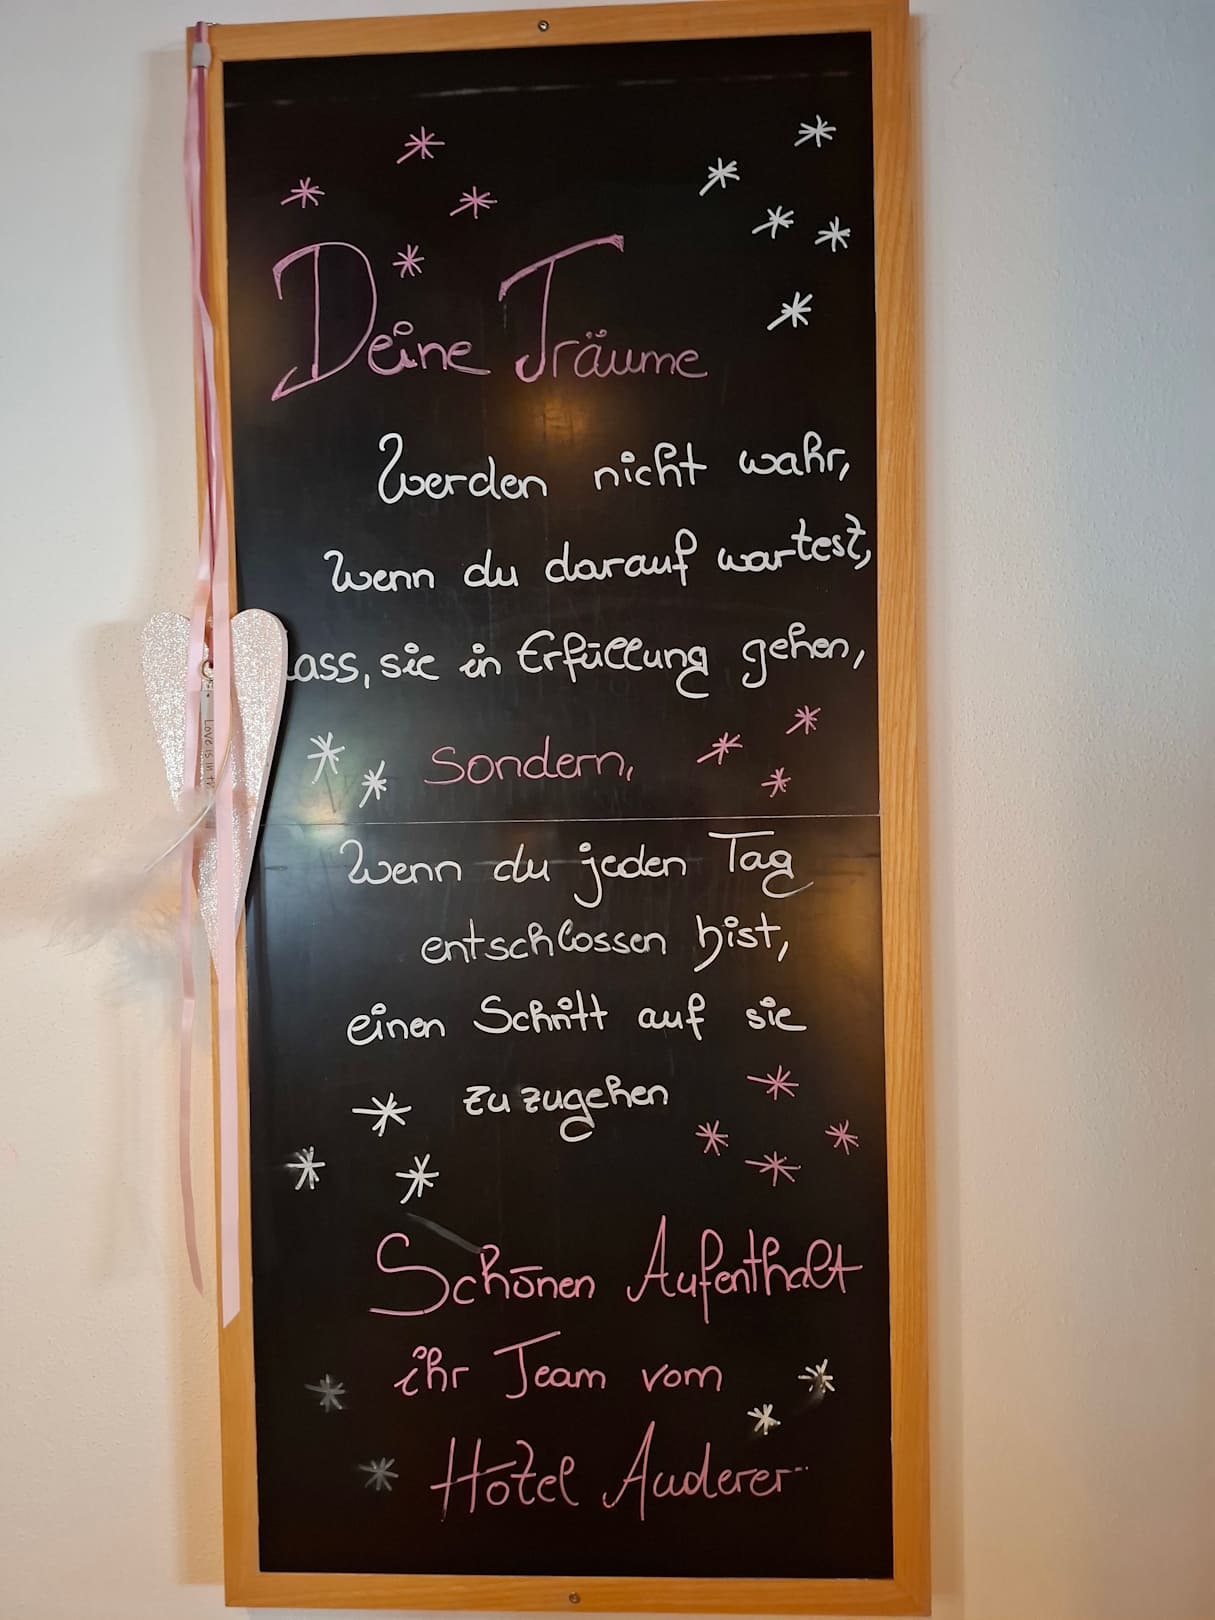 Deine Träume
Werden nicht wahr,
Wenn du darauf wartest,
dass, sie in Erfüllung gehen,
Sondern,
Wenn du jeden Tag
entschlossen bist,
einen Schritt auf sie
zuzugehen
Schönen Aufenthalt
ihr Team vom
Hotel Auderer
Love is in